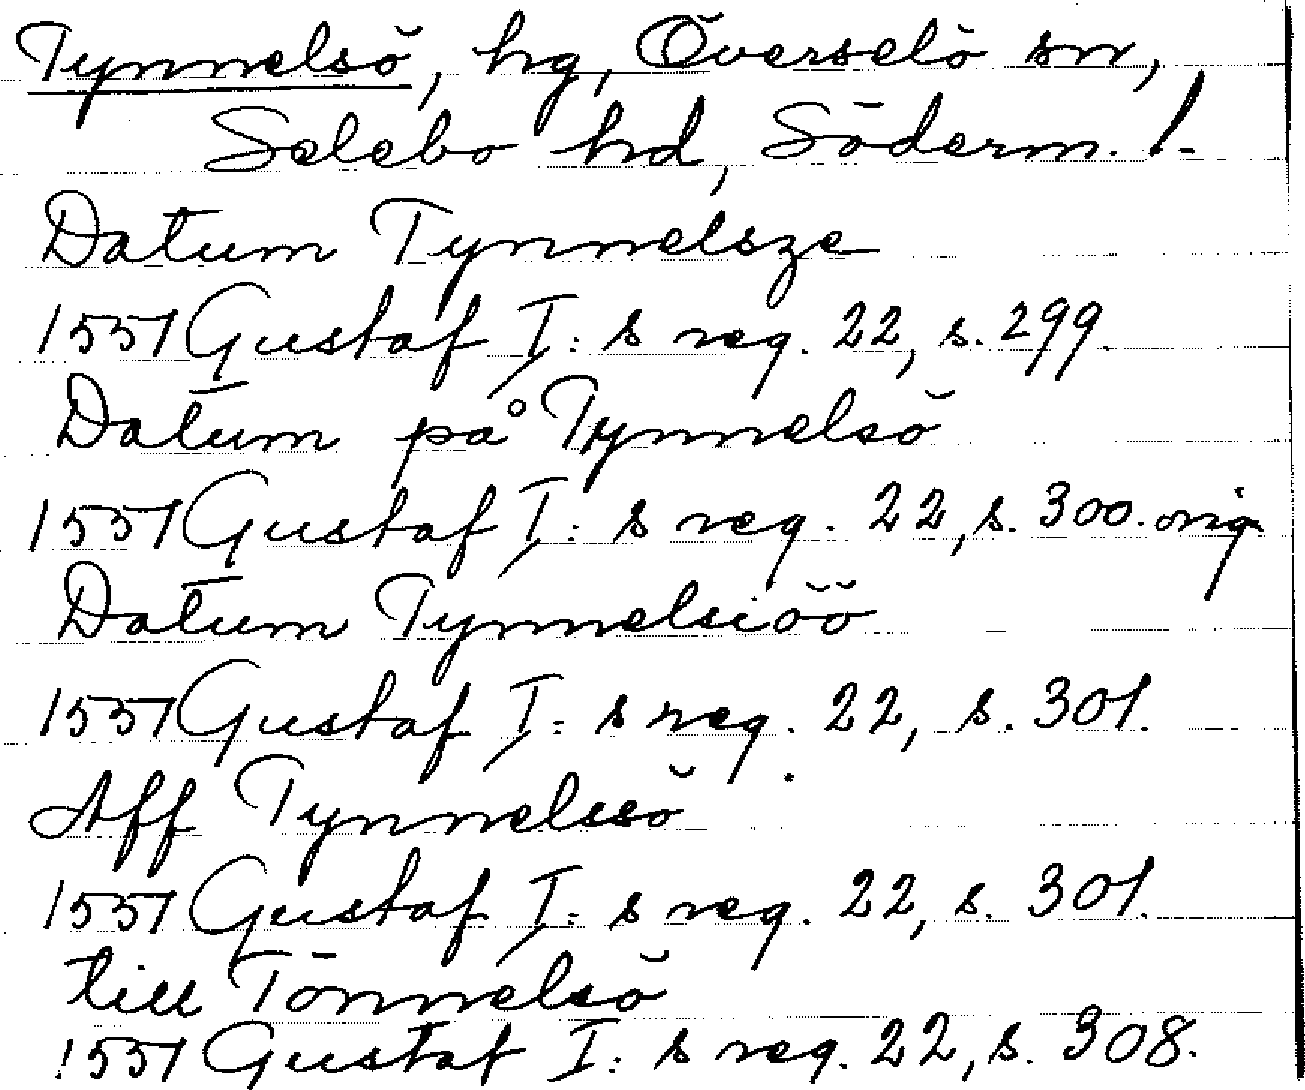 Tynnelsö, hg, Överselö sn,
Selebo hd, Söderm. l.
Datum Tynnelsze
1551 Gustaf I:s reg. 22, s. 299.
Datum på Tynnelsö
1551 Gustaf I:s reg. 22, s. 300. orig.
Datum Tynnelsiöö
1551 Gustaf I:s reg. 22, s. 301.
Aff Tynnelssö
1551 Gustaf I:s reg. 22, s. 301.
till Tönnelsö
1551 Gustaf I:s reg. 22, s. 308.